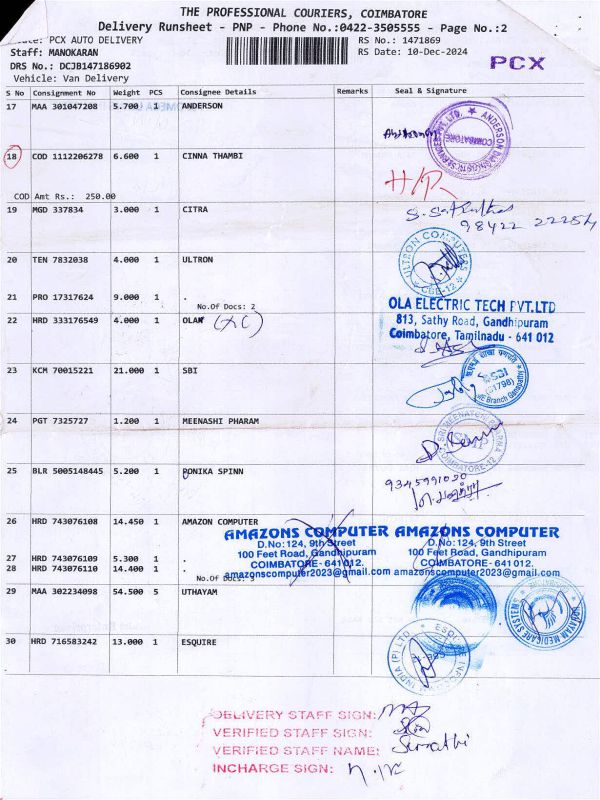 THE PROFESSIONAL COURIERS, COIMBATORE
Delivery Runsheet - PNP - Phone No.:0422-3505555 - Page No.:2
PCX AUTO DELIVERY
RS No.: 1471869
Staff: MANOKARAN
RS Date: 10-Dec-2024
PCX
DRS No.: DCJB147186902
Vehicle: Van Delivery
S No Consignment No Weight PCS Consignee Details Remarks Seal & Signature
17 MAA 301047208 5.700 1 ANDERSON
ANDERSON DIAGNOSTIC SERVICES PVT. LTD. COIMBATORE
18 COD 1112206278 6.600 1 CINNA THAMBI
COD Amt Rs.: 250.00
19 MGD 337834 3.000 1 CITRA
98422 22254
20 TEN 7832038 4.000 1 ULTRON
ULTRON COMPUTERS CBE-12
21 PRO 17317624 9.000 1 .
No.Of Docs: 2
OLA ELECTRIC TECH PVT.LTD
813, Sathy Road, Gandhipuram
Coimbatore, Tamilnadu - 641 012
22 HRD 333176549 4.000 1 OLA
23 KCM 70015221 21.000 1 SBI
SBI
24 PGT 7325727 1.200 1 MEENASHI PHARAM
COIMBATORE-12
25 BLR 5005148445 5.200 1 PONIKA SPINN
26 HRD 743076108 14.450 1 AMAZON COMPUTER
AMAZONS COMPUTER AMAZONS COMPUTER
D.No:124, 9th Street D.No:124, 9th Street
100 Feet Road, Gandhipuram 100 Feet Road, Gandhipuram
COIMBATORE-641012. COIMBATORE-641012.
amazonscomputer2023@gmail.com amazonscomputer2023@gmail.com
27 HRD 743076109 5.300 1 .
28 HRD 743076110 14.400 1 .
No.Of Docs: 3
29 MAA 302234098 54.500 5 UTHAYAM
30 HRD 716583242 13.000 1 ESQUIRE
DELIVERY STAFF SIGN:
VERIFIED STAFF SIGN:
VERIFIED STAFF NAME:
INCHARGE SIGN: